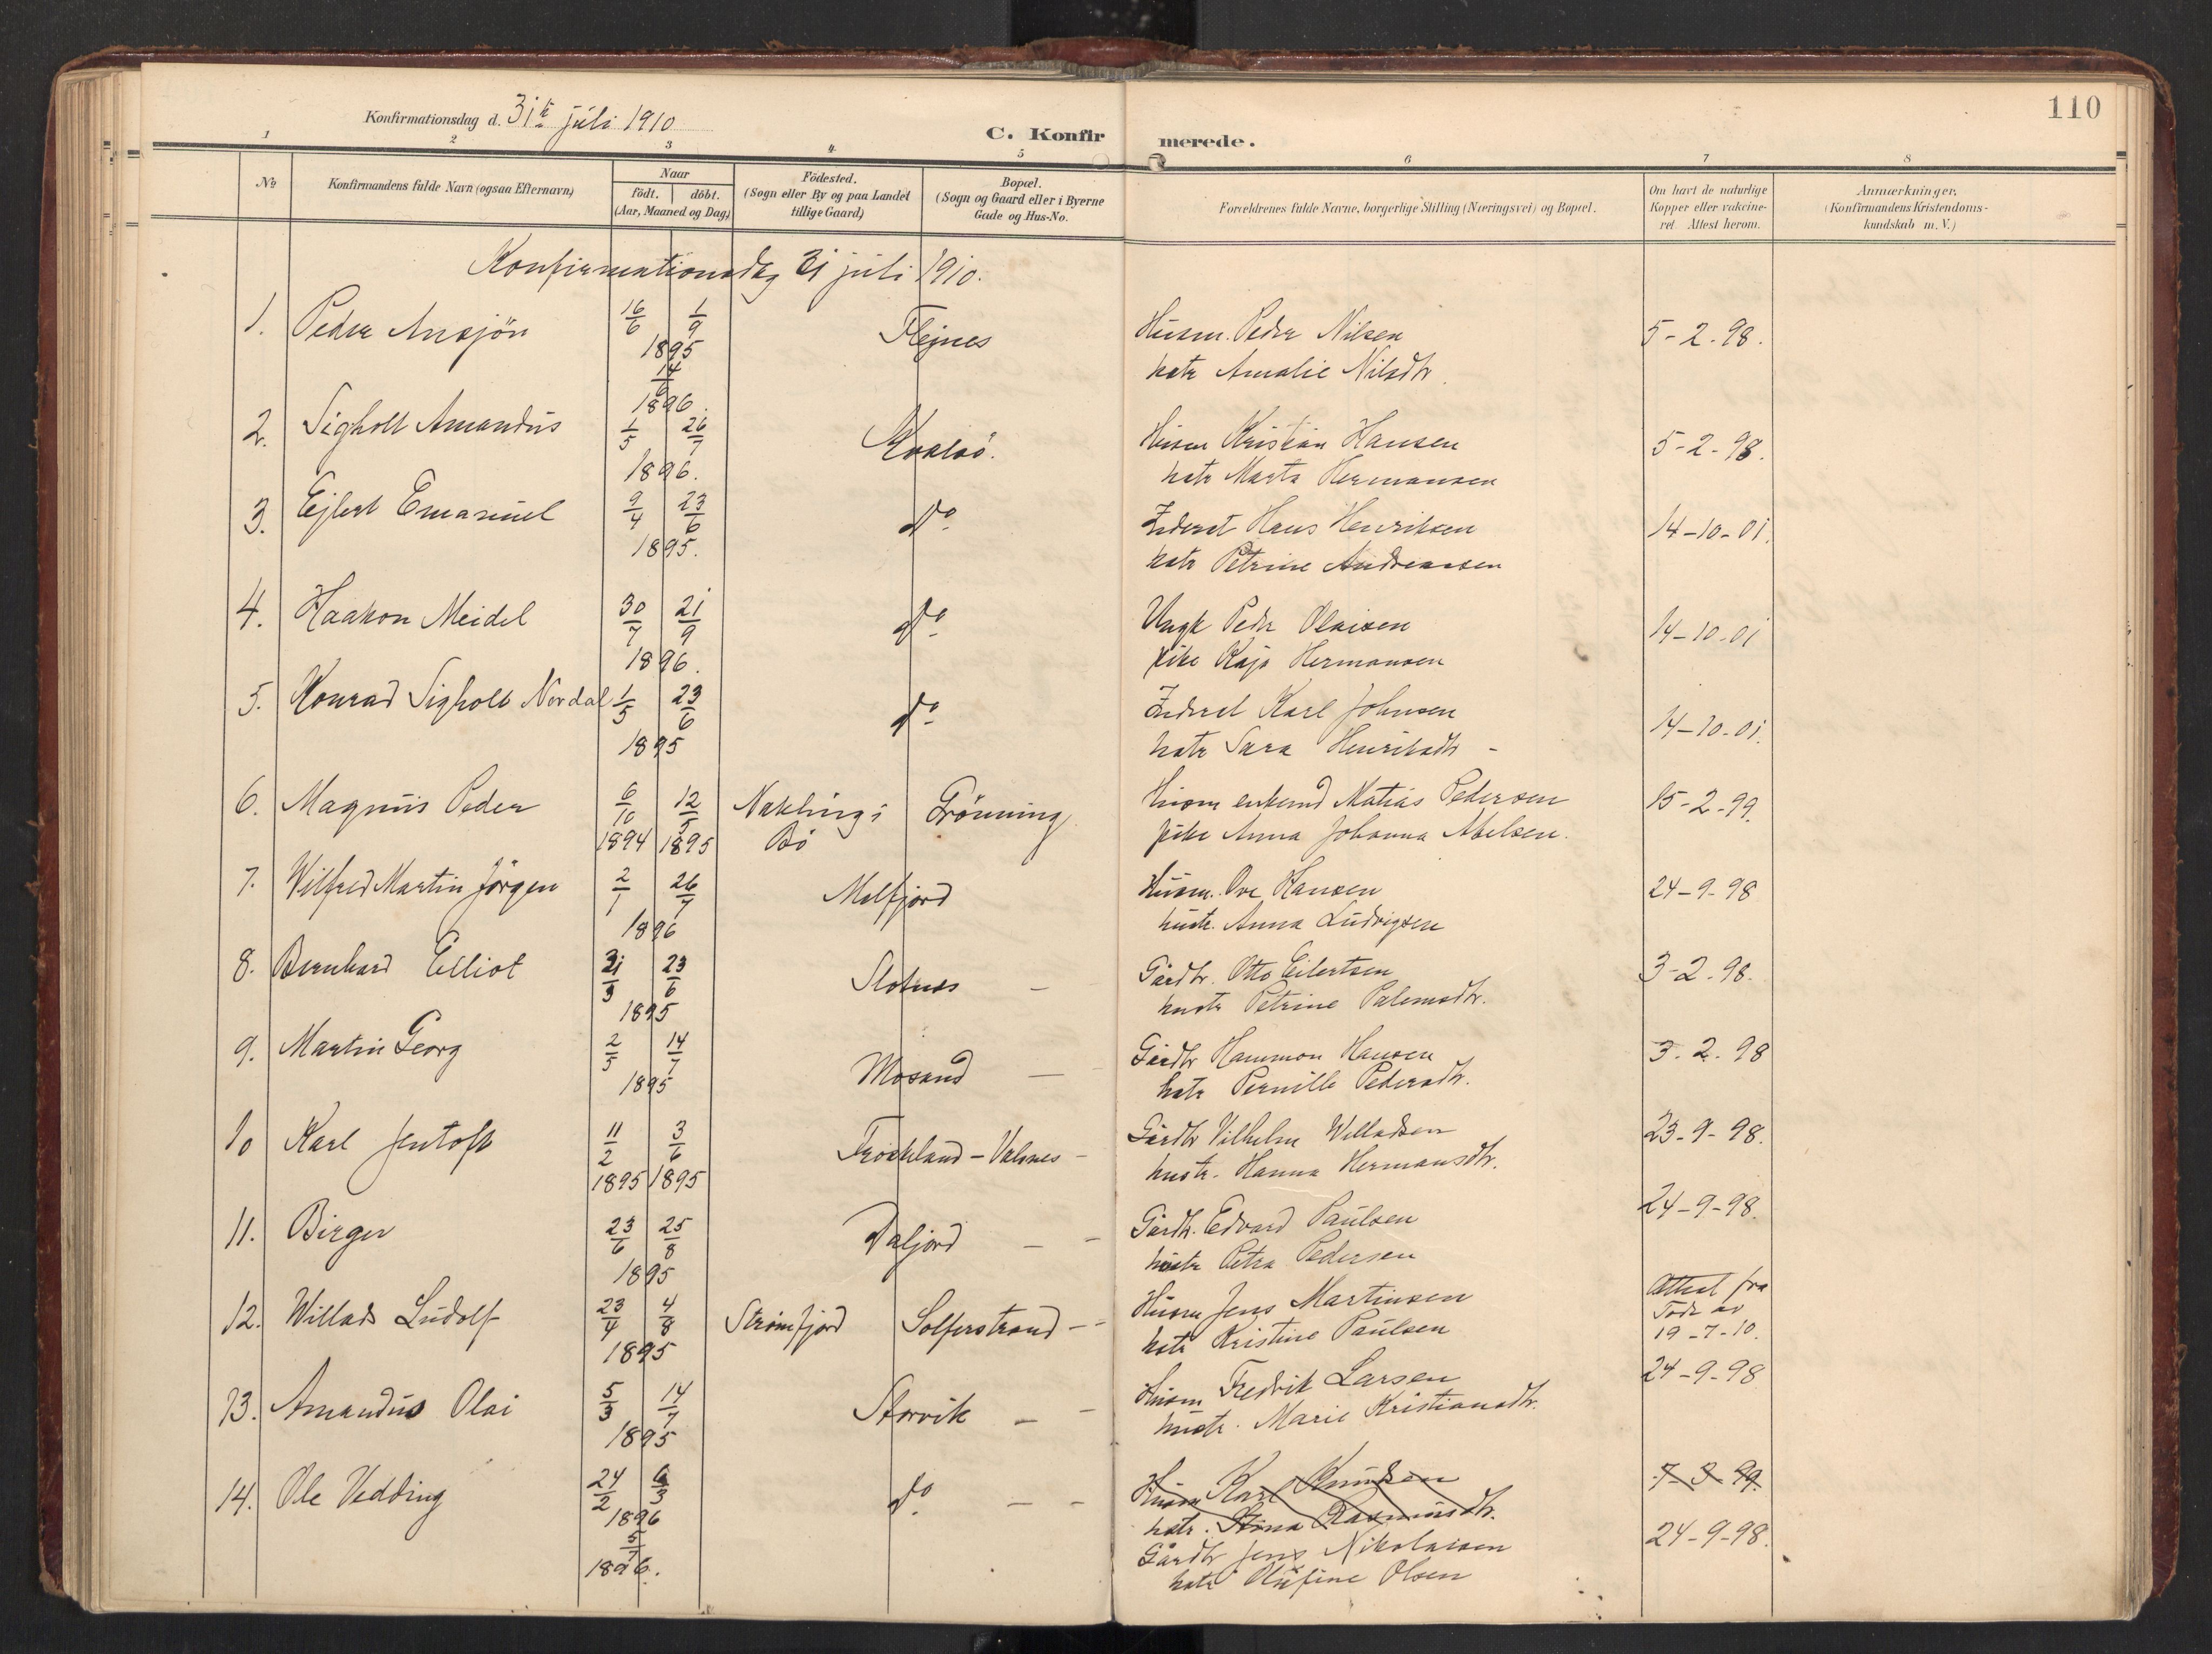 110
Konfirmationsdag d. 31te juli 1910
C. Konfirmerede.
1 2 3 4 5 6 7 8
No
Konfirmandens fulde Navn (ogsaa Efternavn)
Naar
födt. döbt.
(Aar, Maaned og Dag)
Födested.
(Sogn eller By og paa Landet
tillige Gaard)
Bopæl.
(Sogn og Gaard eller i Byerne
Gade og Hus-No.
Forældrenes fulde Navne, borgerlige Stilling (Næringsvei) og Bopæl.
Om havt de naturlige
Kopper eller vakcine-
ret. Attest herom.
Anmærkninger,
(Konfirmandens Kristendoms-
kundskab m. V.)
Konfirmationsdag 31 juli 1910.
1. Peder Ansjön 16/6 1/9 Flejnes Husm. Peder Nilsen 5-2-98.
1895 hstr Amalie Nilsdtr.
14/6
1896.
2. Sigholt Amandus 1/5 26/7 Kvalsö. Husm Kristian Hansen 5-2-98.
1896. hstr Marta Hermansen
3. Ejlert Emanuel 9/4 23/6 do Inderst Hans Henriksen 14-10-01.
1895. hstr Petrine Andreassen
4. Haakon Meidel 30/7 21/9 do Ungk Peder Olaisen 14-10-01
1896. pike Kaja Hermansen
5. Konrad Sigholt Nordal 1/5 23/6 do Inderst Karl Johnsen 14-10-01.
1895 hstr Sara Henriksdtr -
6. Magnus Peder 6/10 12/5 Nykling i Grönning Husm enkemd Matias Pedersen 15-2-99.
1894 1895 Bö pike Anna Johanna Abelsen.
7. Wilfred Martin Jörgen 2/1 26/7 Melfjord Husm. Ove Hansen 24-9-98
1896 hustr. Anna Ludvigsen
8. Bernhard Elliot 31/3 23/6 Slotnes - Gårdbr. Otto Eilertsen 3-2-98.
1895 hustr Petrine Palemsdtr.
9. Martin Georg 2/5 14/7 Mosand - Gårdbr Hammon Hansen 3.2.98
1895 hstr Pernille Pedersdtr.
10 Karl Jentoft 11/2 3/6 Froskland - Valsnes - Gårdbr Vilhelm Willadsen 23-9-98.
1895 1895 hustr. Hanna Hermansdtr.
11. Birger 23/6 25/8 Daljord - - Gårdbr. Edvard Paulsen 24-9-98.
1895 hustr Petra Pedersen
12. Willads Ludolf 23/4 4/8 Strömfjord Solferstrand - - Husm Jens Martinsen Attest fra
1895 hstr Kristine Paulsen 19-7-10.
13. Amandus Olai 5/3 14/7 Storvik - - Husm Fredrik Larsen 24-9-98
1895 hustr. Marie Kristiansdtr.
14. Ole Vedding 24/2 6/3 do - - Husm Karl Knudsen 7-9-99.
1896 hstr. Stina Rasmusdtr.
5/7 Gårdbr Jens Nikolaisen 24-9-98.
1896. hstr Olufine Olsen